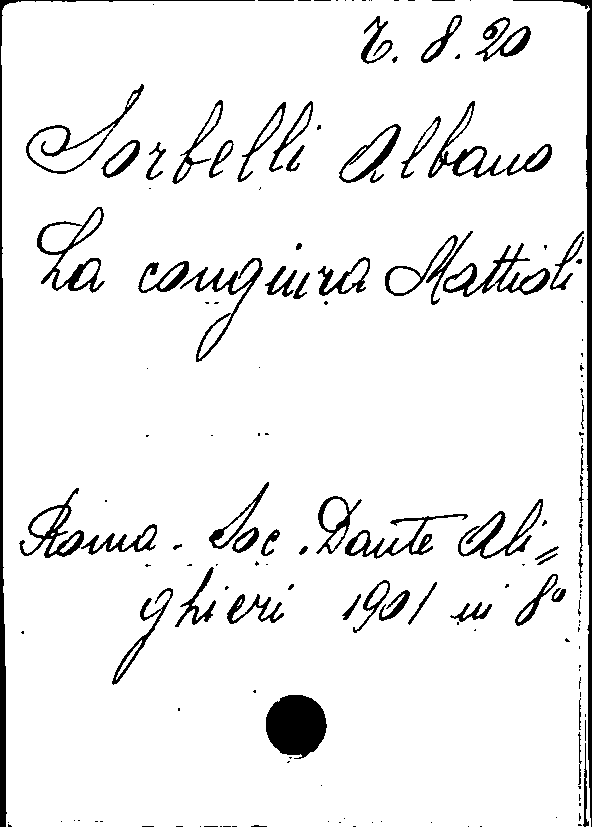 7. 8. 20
Sorbelli Albano
La congiura Mattioli
Roma - Soc. Dante Ali=
ghieri 1901 in 8º